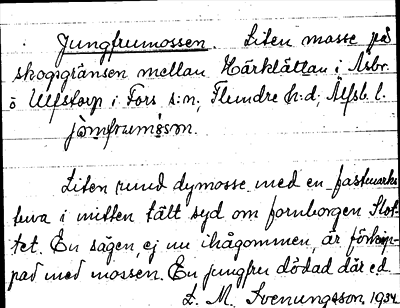 Jungfrumossen. Liten mosse på
skogsgränsen mellan Härklättan i Asbr.
o Ulfstorp i Fors s:n, Flundre h:d, Älfsb. l.
jòmfrumósən.
Liten rund dymosse med en fastmarks
tuva i mitten tätt syd om fornborgen Slot-
tet. En sägen, ej nu ihågommen, är förknip-
pad med mossen. En jungfru dödad där ed
L. M. Svenungsson, 1934